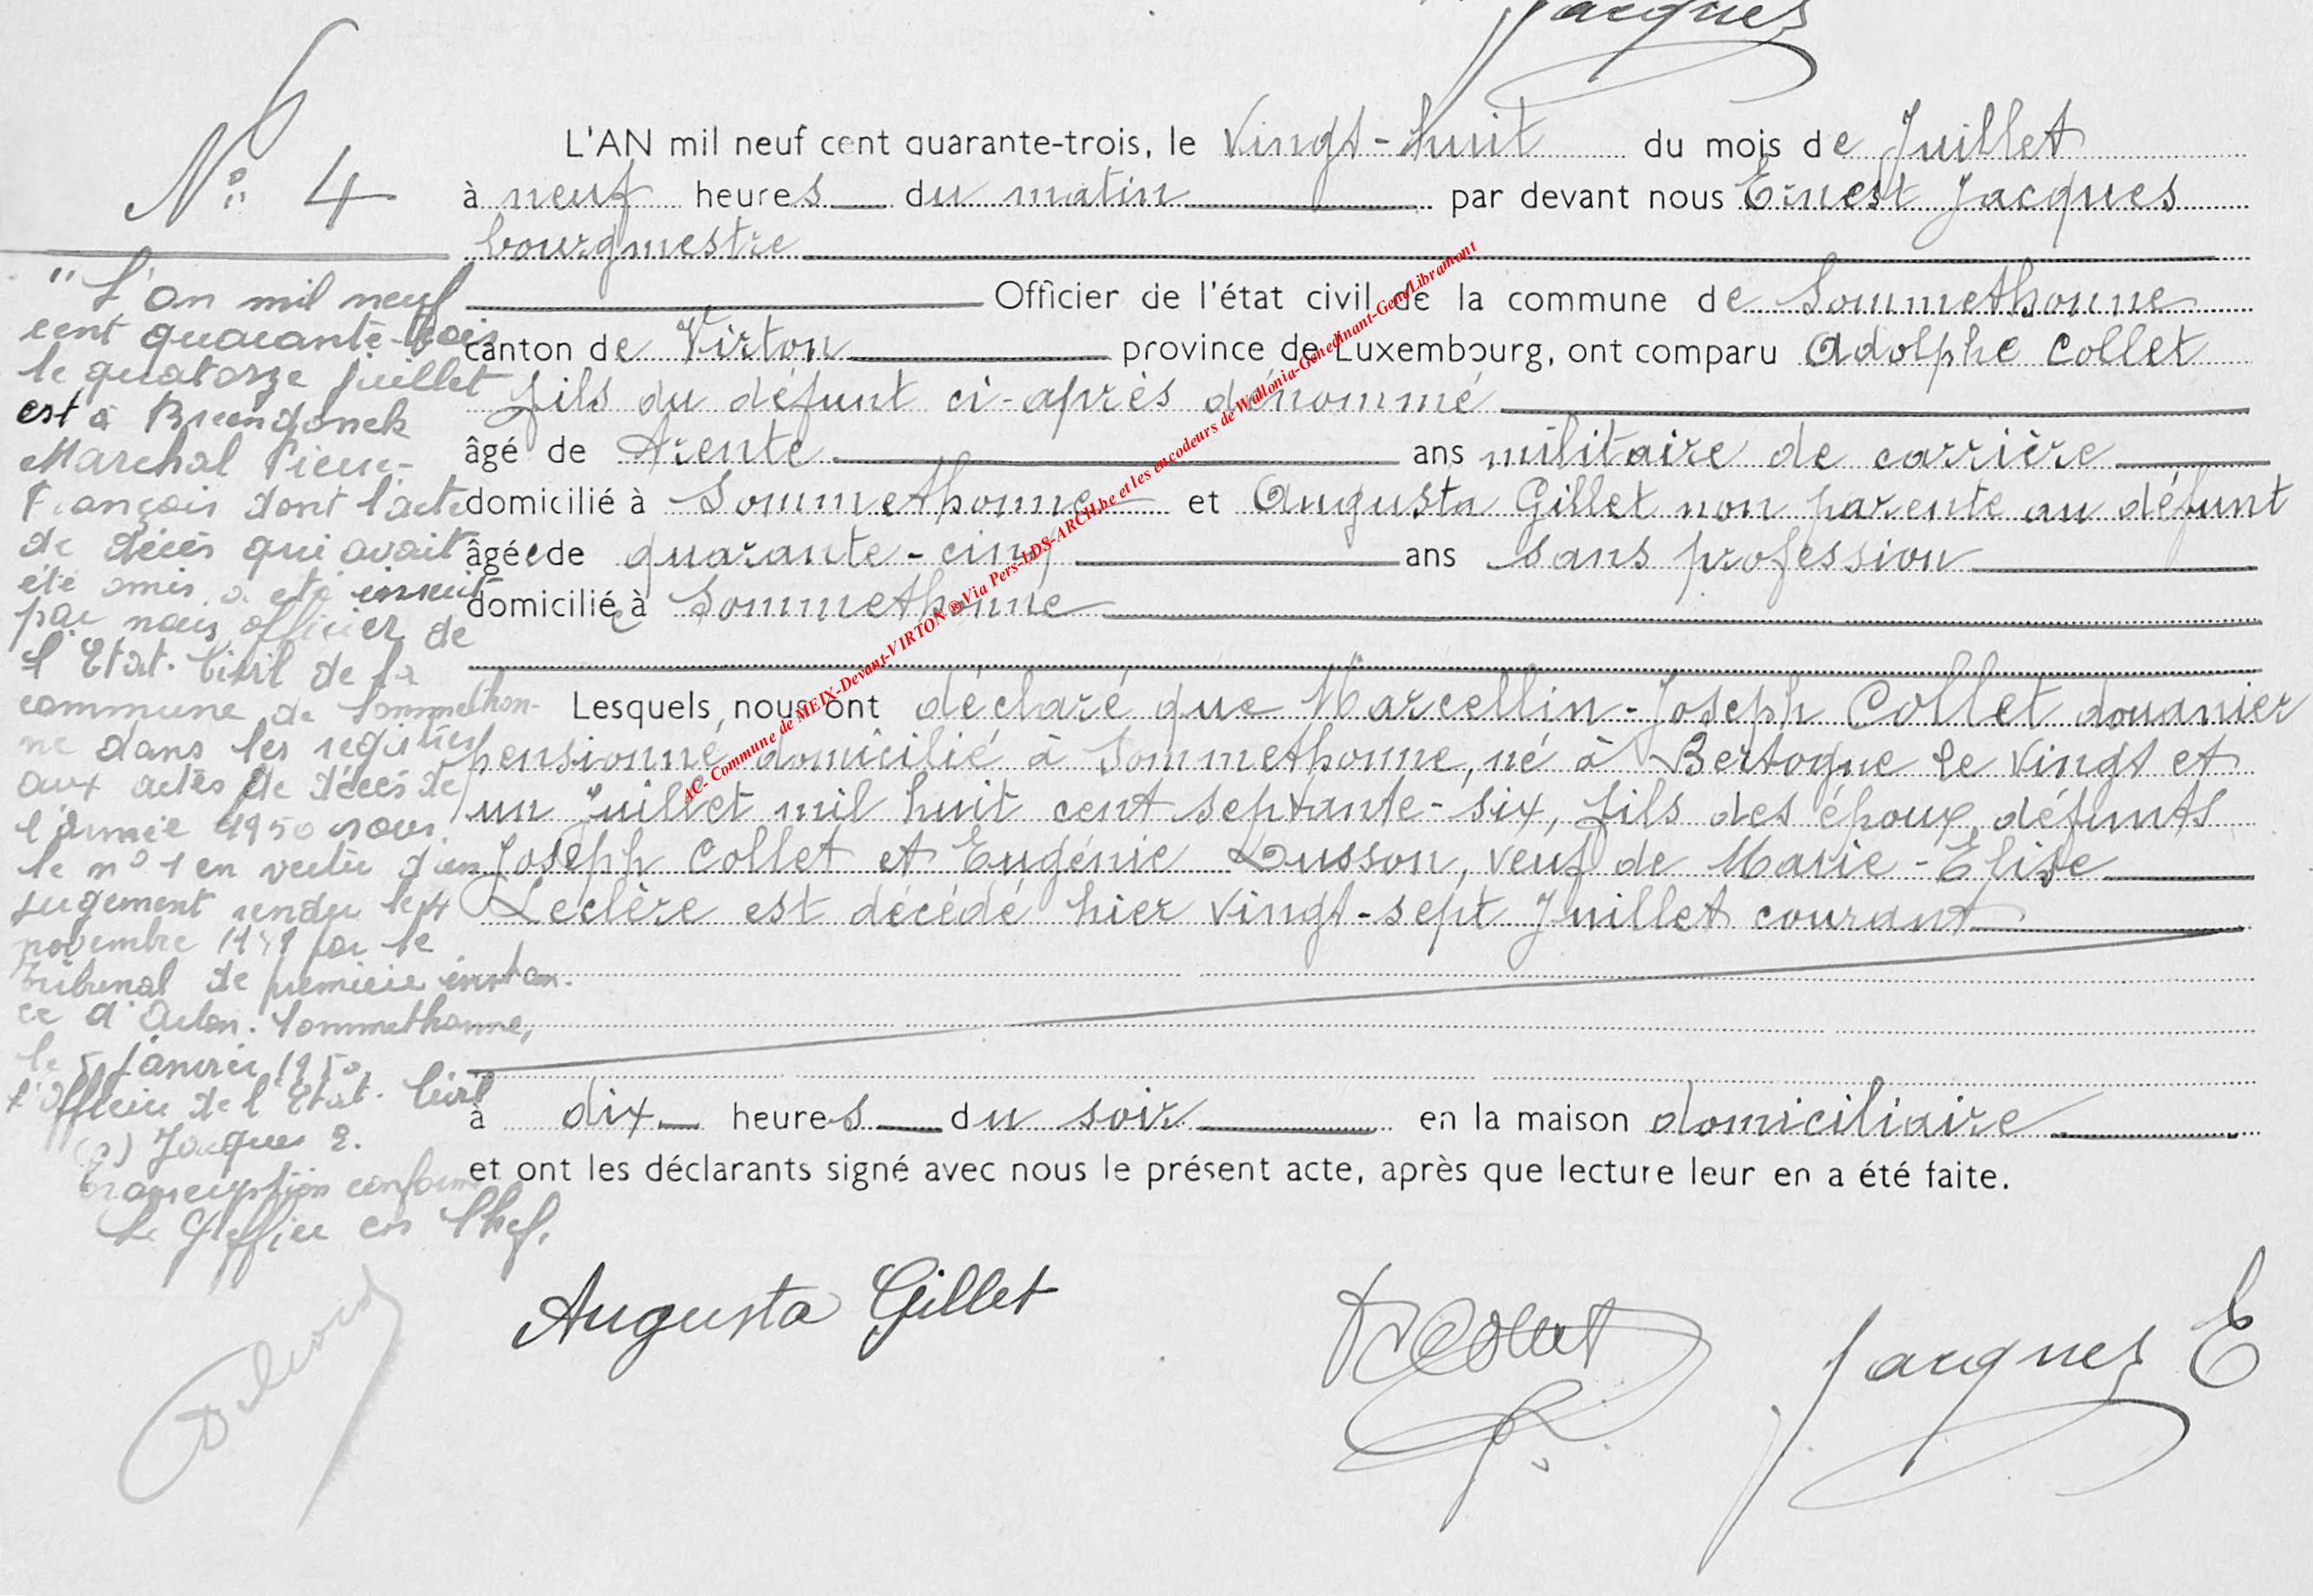 Jacques
Nº 4
L'AN mil neuf cent quarante-trois, le Vingt-huit du mois de Juillet
à neuf heures du matin par devant nous Ernest Jacques
bourgmestre
Officier de l'état civil de la commune de Sommethonne
canton de Virton province de Luxembourg, ont comparu Adolphe Collet
fils du défunt ci-après dénommé
âgé de trente ans militaire de carrière
domicilié à Sommethonne et Augusta Gillet non parente au défunt
âgée de quarante-cinq ans sans profession
domiciliée à Sommethonne
Lesquels nous ont déclaré que Marcellin-Joseph Collet douanier
pensionné domicilié à Sommethonne, né à Bertogne le vingt et
un juillet mil huit cent septante-six, fils des époux défunts
Joseph Collet et Eugénie Dusson, veuf de Marie-Elise
Leclère est décédé hier vingt-sept Juillet courant
à dix heures du soir en la maison domiciliaire
et ont les déclarants signé avec nous le présent acte, après que lecture leur en a été faite.
"L'an mil neuf
cent quarante-trois
le quatorze juillet
est à Breendonck
Marchal Pierre-
François dont l'acte
de décès qui avait
été omis a été inscrit
par nous officier de
l'Etat-Civil de la
commune de Sommethon-
ne dans les registres
aux actes de décès de
l'année 1950 sous
le nº 1 en vertu d'un
jugement rendu le
novembre 1949 par le
Tribunal de première instan-
ce d'Arlon. Sommethonne,
le 5 janvier 1950
L'Officier de l'Etat-Civil
(s) Jacques E.
Transcription conforme
Le Greffier en Chef,
Augusta Gillet
Collet
Jacques E
AC- Commune de MEIX-Devant-VIRTON ® Via Pers-LDS-ARCH.be et les encodeurs de Wallonia-Genedinant-GeneLibramont